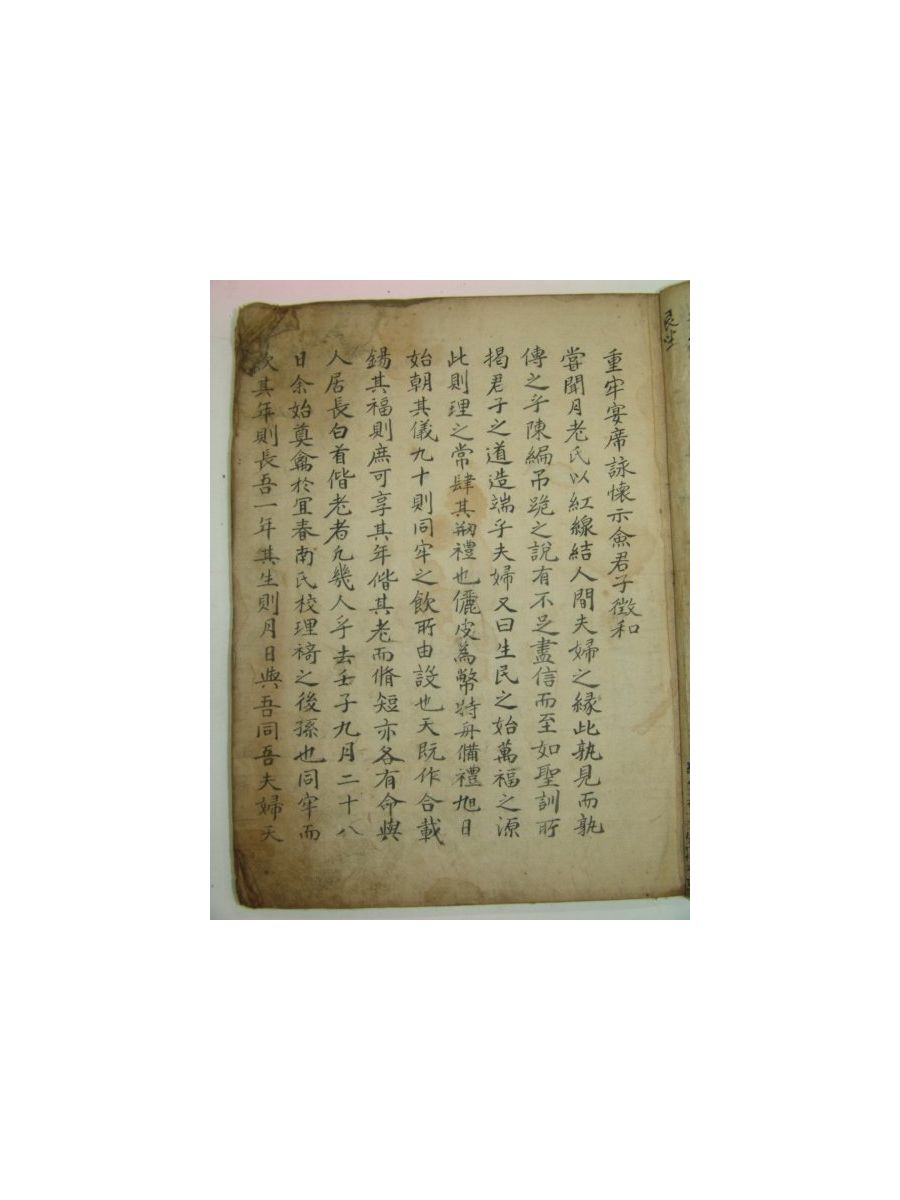 重牢宴席詠懷示僉君子徵和
嘗聞月老氏以紅線結人間夫婦之緣此孰見而孰
傳之乎陳編吊詭之說有不足盡信而至如聖訓所
揭君子之道造端乎夫婦又曰生民之始萬福之源
此則理之常肆其刱禮也儷皮為幣特舟備禮旭日
始朝其儀九十則同牢之飲所由設也天既作合載
錫其福則庶可享其年偕其老而脩短亦各有命與
人居長白首偕老者凡幾人乎去壬子九月二十八
日余始奠鴈於宜春南氏校理之後孫也同牢而
飲其年則長吾一年其生則月日與吾同吾夫婦天